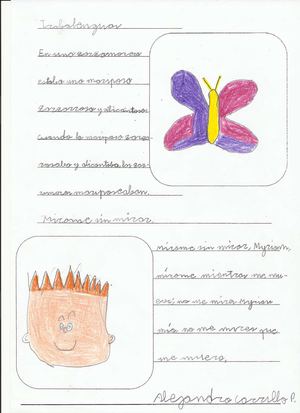 Trabalenguas
En una zarzamora
estaba una mariposa
zarzarrosa y alicantosa.
Cuando la mariposa zarza
rosaba y alicantaba, las zar-
zamoras mariposeaban.
Mírame sin mirar.
Mírame sin mirar, Myriam,
mírame mientras me mu-
eve; no me mires, Myriam
mía, no me mires que
me muero.
Alejandro Carrillo P.